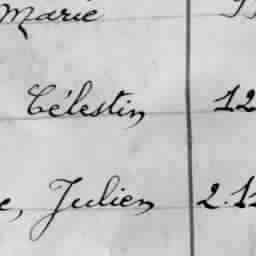 Marie
Célestin 12
e, Julien 2.1